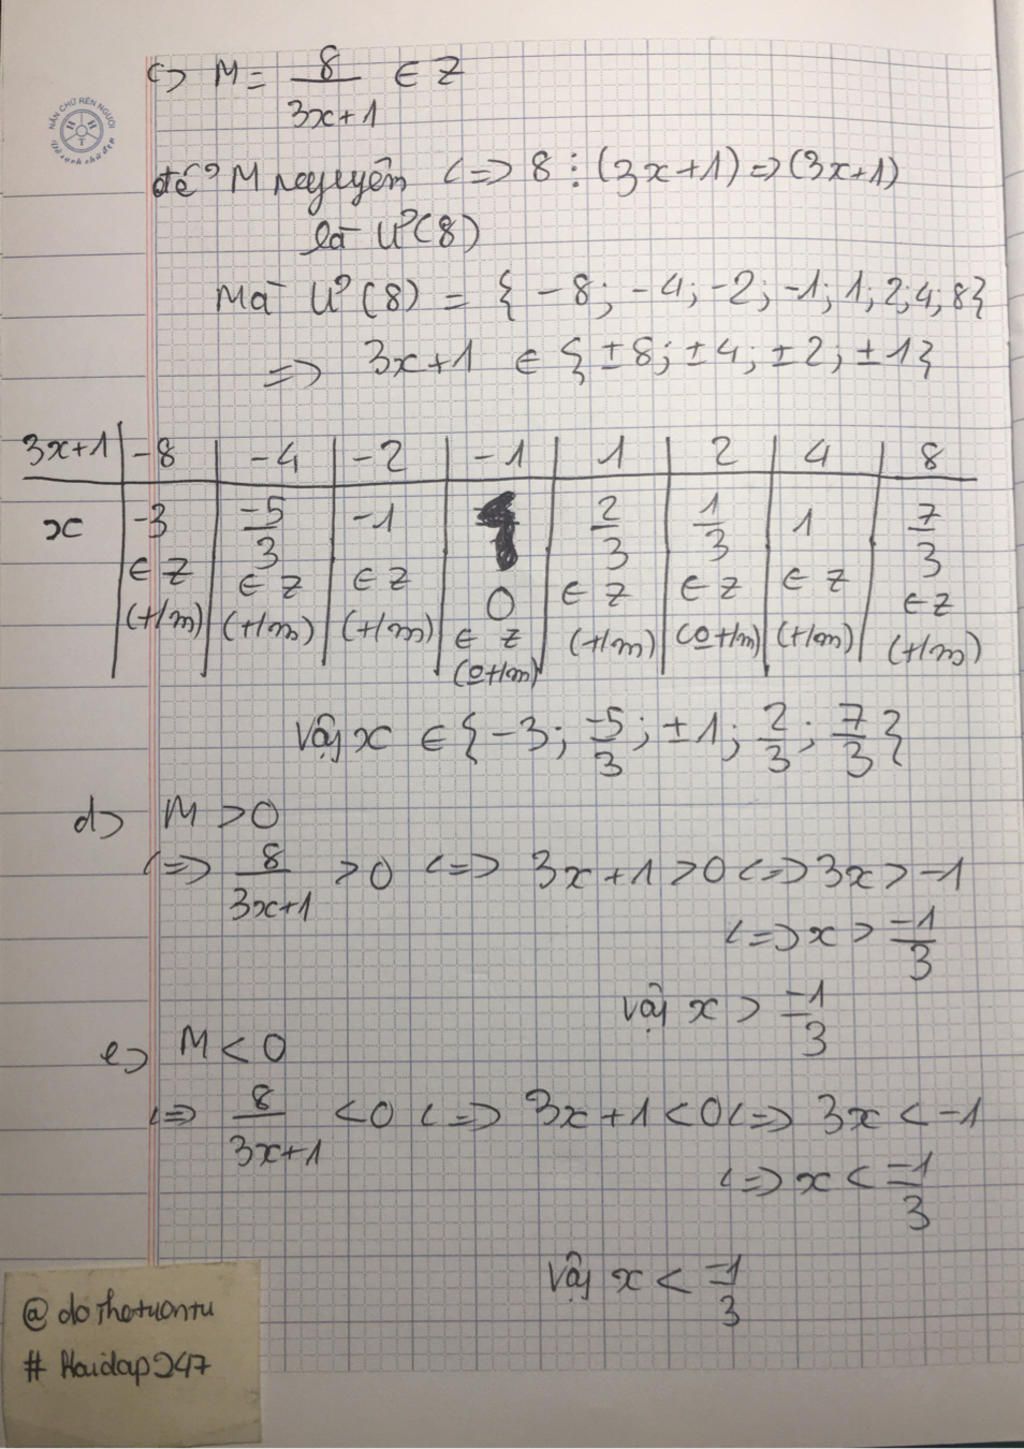 c) M = 8/(3x+1) ∈ Z
NẮN CHỮ RÈN NGƯỜI
để M nguyên <=> 8 ⋮ (3x+1) => (3x+1)
là Ư(8)
Mà Ư(8) = {-8; -4; -2; -1; 1; 2; 4; 8}
=> 3x+1 ∈ {±8; ±4; ±2; ±1}
3x+1 | -8 | -4 | -2 | -1 | 1 | 2 | 4 | 8
x | -3 | -5/3 | -1 | 0 | 2/3 | 1/3 | 1 | 7/3
∈ Z | ∈ Z | ∈ Z | ∈ Z | ∈ Z | ∈ Z | ∈ Z | ∈ Z
(t/m) | (t/m) | (t/m) | (o t/m) | (t/m) | (o t/m) | (t/m) | (t/m)
Vậy x ∈ {-3; -5/3; ±1; 2/3; 7/3}
d) M > 0
<=> 8/(3x+1) > 0 <=> 3x+1 > 0 <=> 3x > -1
<=> x > -1/3
Vậy x > -1/3
e) M < 0
<=> 8/(3x+1) < 0 <=> 3x+1 < 0 <=> 3x < -1
<=> x < -1/3
Vậy x < -1/3
@ dothotuontu
# Hoidap247